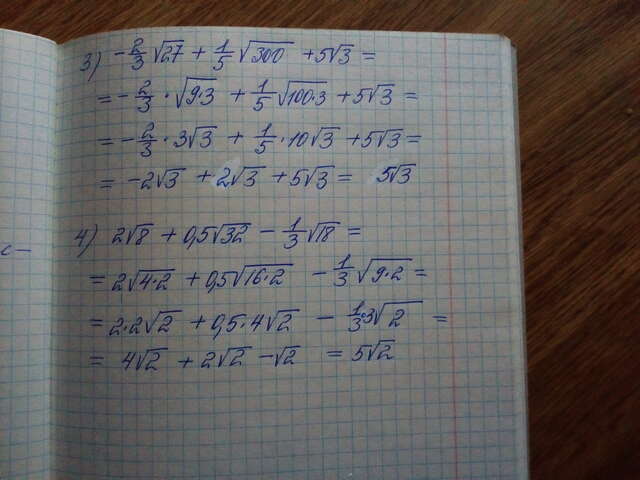 3) -2/3 √27 + 1/5 √300 + 5√3 =
= -2/3 · √9·3 + 1/5 √100·3 + 5√3 =
= -2/3 · 3√3 + 1/5 · 10√3 + 5√3 =
= -2√3 + 2√3 + 5√3 = 5√3
4) 2√8 + 0,5√32 - 1/3 √18 =
с-
= 2√4·2 + 0,5√16·2 - 1/3 √9·2 =
= 2·2√2 + 0,5·4√2 - 1/3·3√2 =
= 4√2 + 2√2 - √2 = 5√2